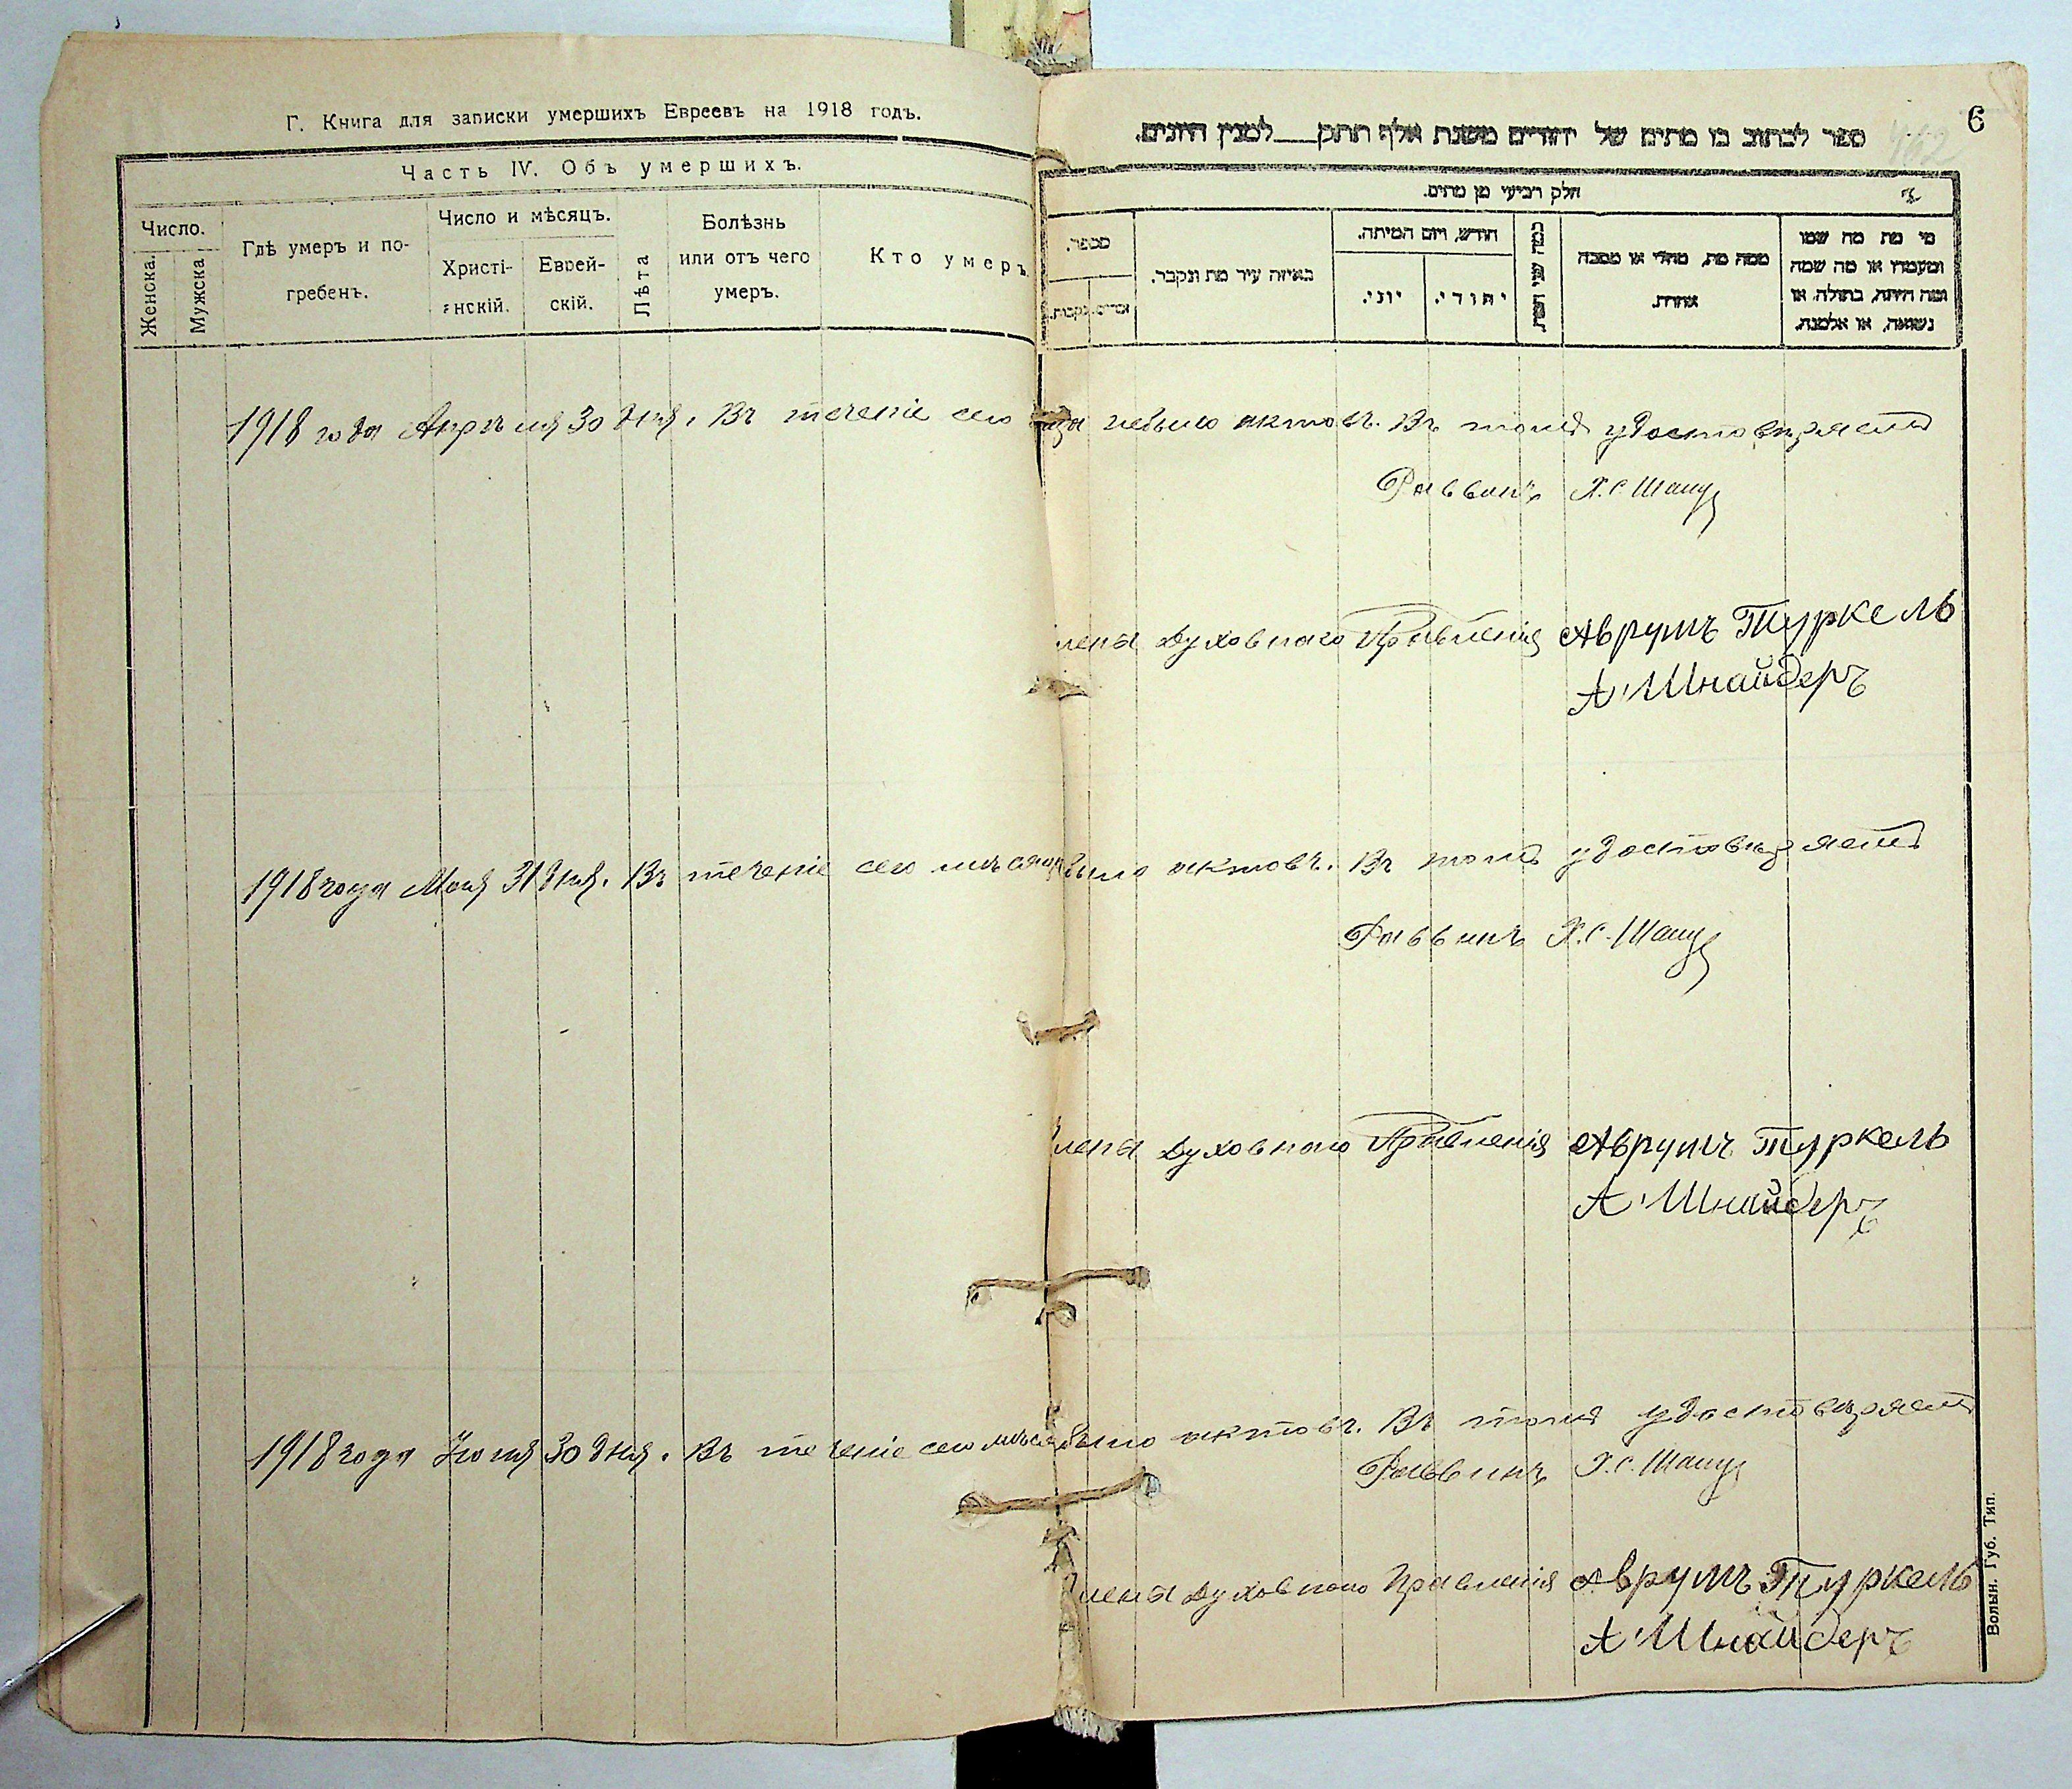 Г. Книга для записки умершихъ Евреевъ на 1918 годъ.
Часть IV. Объ умершихъ.
Число.
Женска.
Мужска
Гдѣ умеръ и по-
гребенъ.
Число и мѣсяцъ.
Христі-
анскій.
Еврей-
скій.
Лѣта
Болѣзнь
или отъ чего
умеръ.
Кто умеръ
6
462
ספר לכתוב בו מתים של יהודים משנת אלף תתק___למנין היונים.
חלק רביעי מן מתים.
מספר.
נקבות.
זכרים.
באיזה עיר מת ונקבר.
חודש, ויום המיתה.
יוני.
יהודי.
ממה מת, מחלי או מסבה
אחרת.
מי מת מה שמו
ומעמדו או מה שמה
ומה היתה, בתולה, או
נשואה, או אלמנה.
1918 года Апрѣля 30 дня. Въ теченіе сего небыло актовъ. Въ томъ удостовѣряемъ
Раввинъ Х.С.
члена Духовнаго Правленія Аврумъ Туркель
А Шнайдеръ
1918 года Мая 31 дня. Въ теченіе сего мѣсяца было актовъ. Въ томъ удостовѣряемъ
Раввинъ Х.С.
Члена Духовнаго Правленія Аврумъ Туркель
А Шнайдеръ
1918 года Іюня 30 дня. Въ теченіе сего было актовъ. Въ томъ удостовѣряемъ
Раввинъ Х.С.
члена Духовнаго Правленія Аврумъ Туркель
А Шнайдеръ
Волын. Губ. Тип.